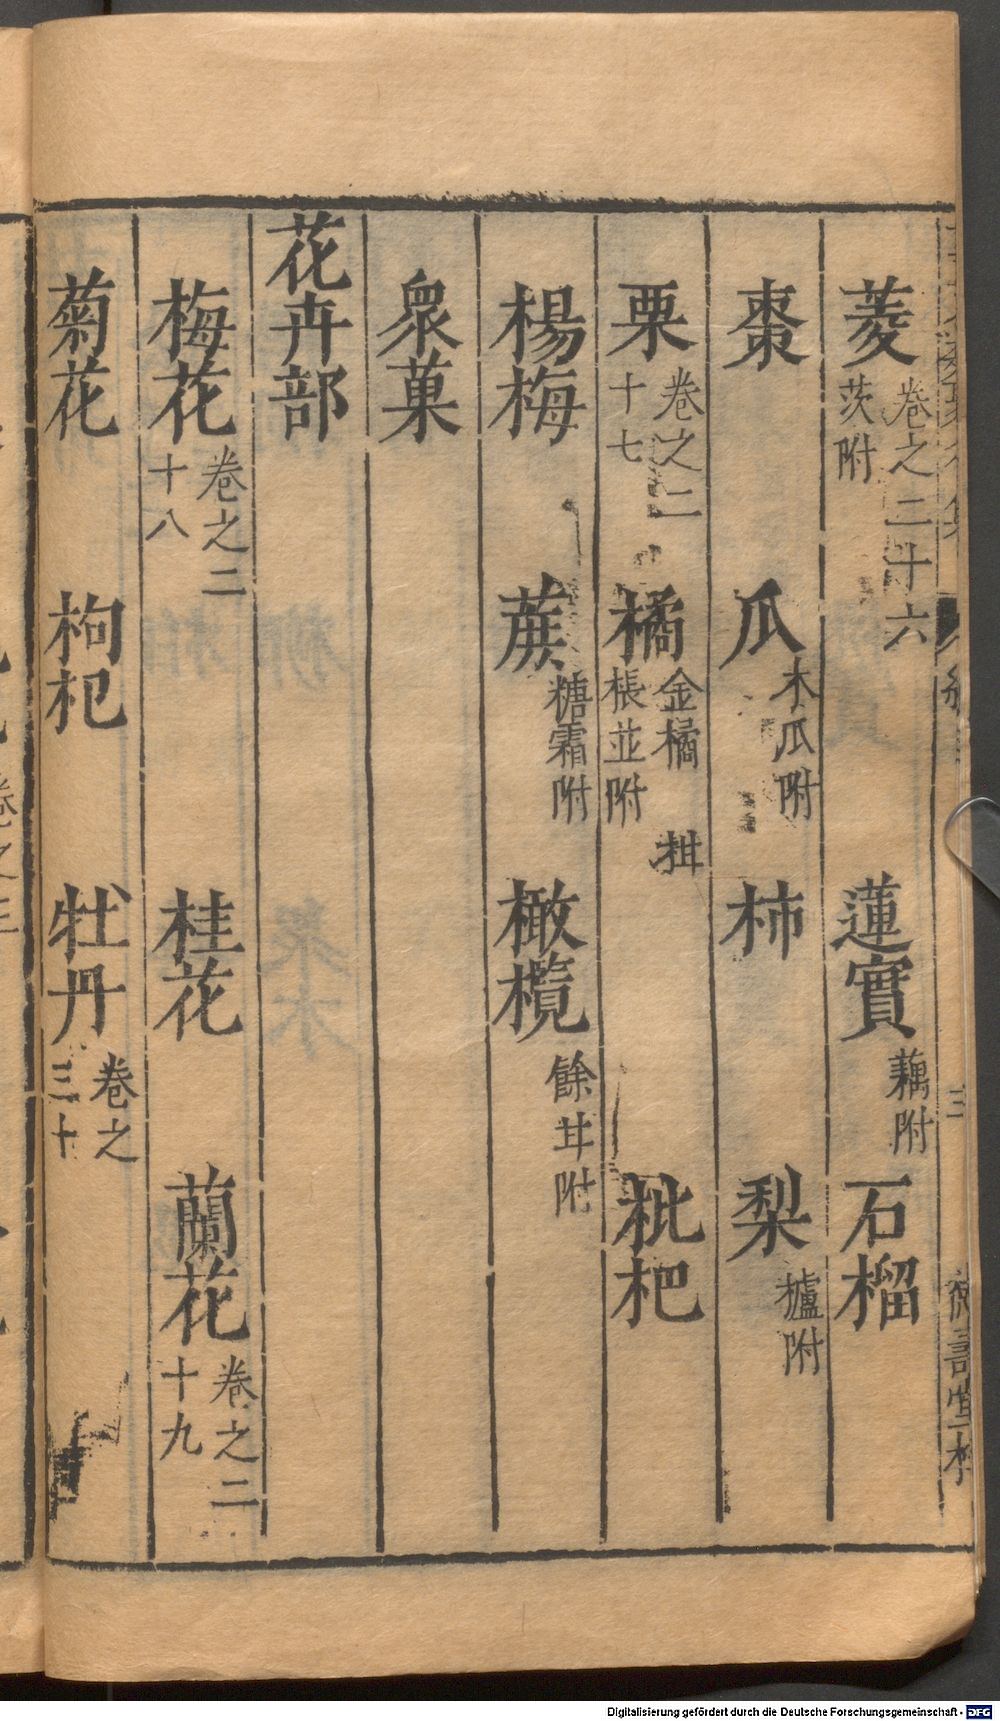 菱 卷之二十六 茨附 蓮實 藕附 石榴
棗 瓜 木瓜附 柿 梨 攎附
栗 卷之二十七 橘 金橘 柑 棖並附 枇杷
楊梅 蔗 糖霜附 橄欖 餘甘附
衆菓
花卉部
梅花 卷之二十八 桂花 蘭花 卷之二十九
菊花 枸杞 牡丹 卷之三十
Digitalisierung gefördert durch die Deutsche Forschungsgemeinschaft - DFG